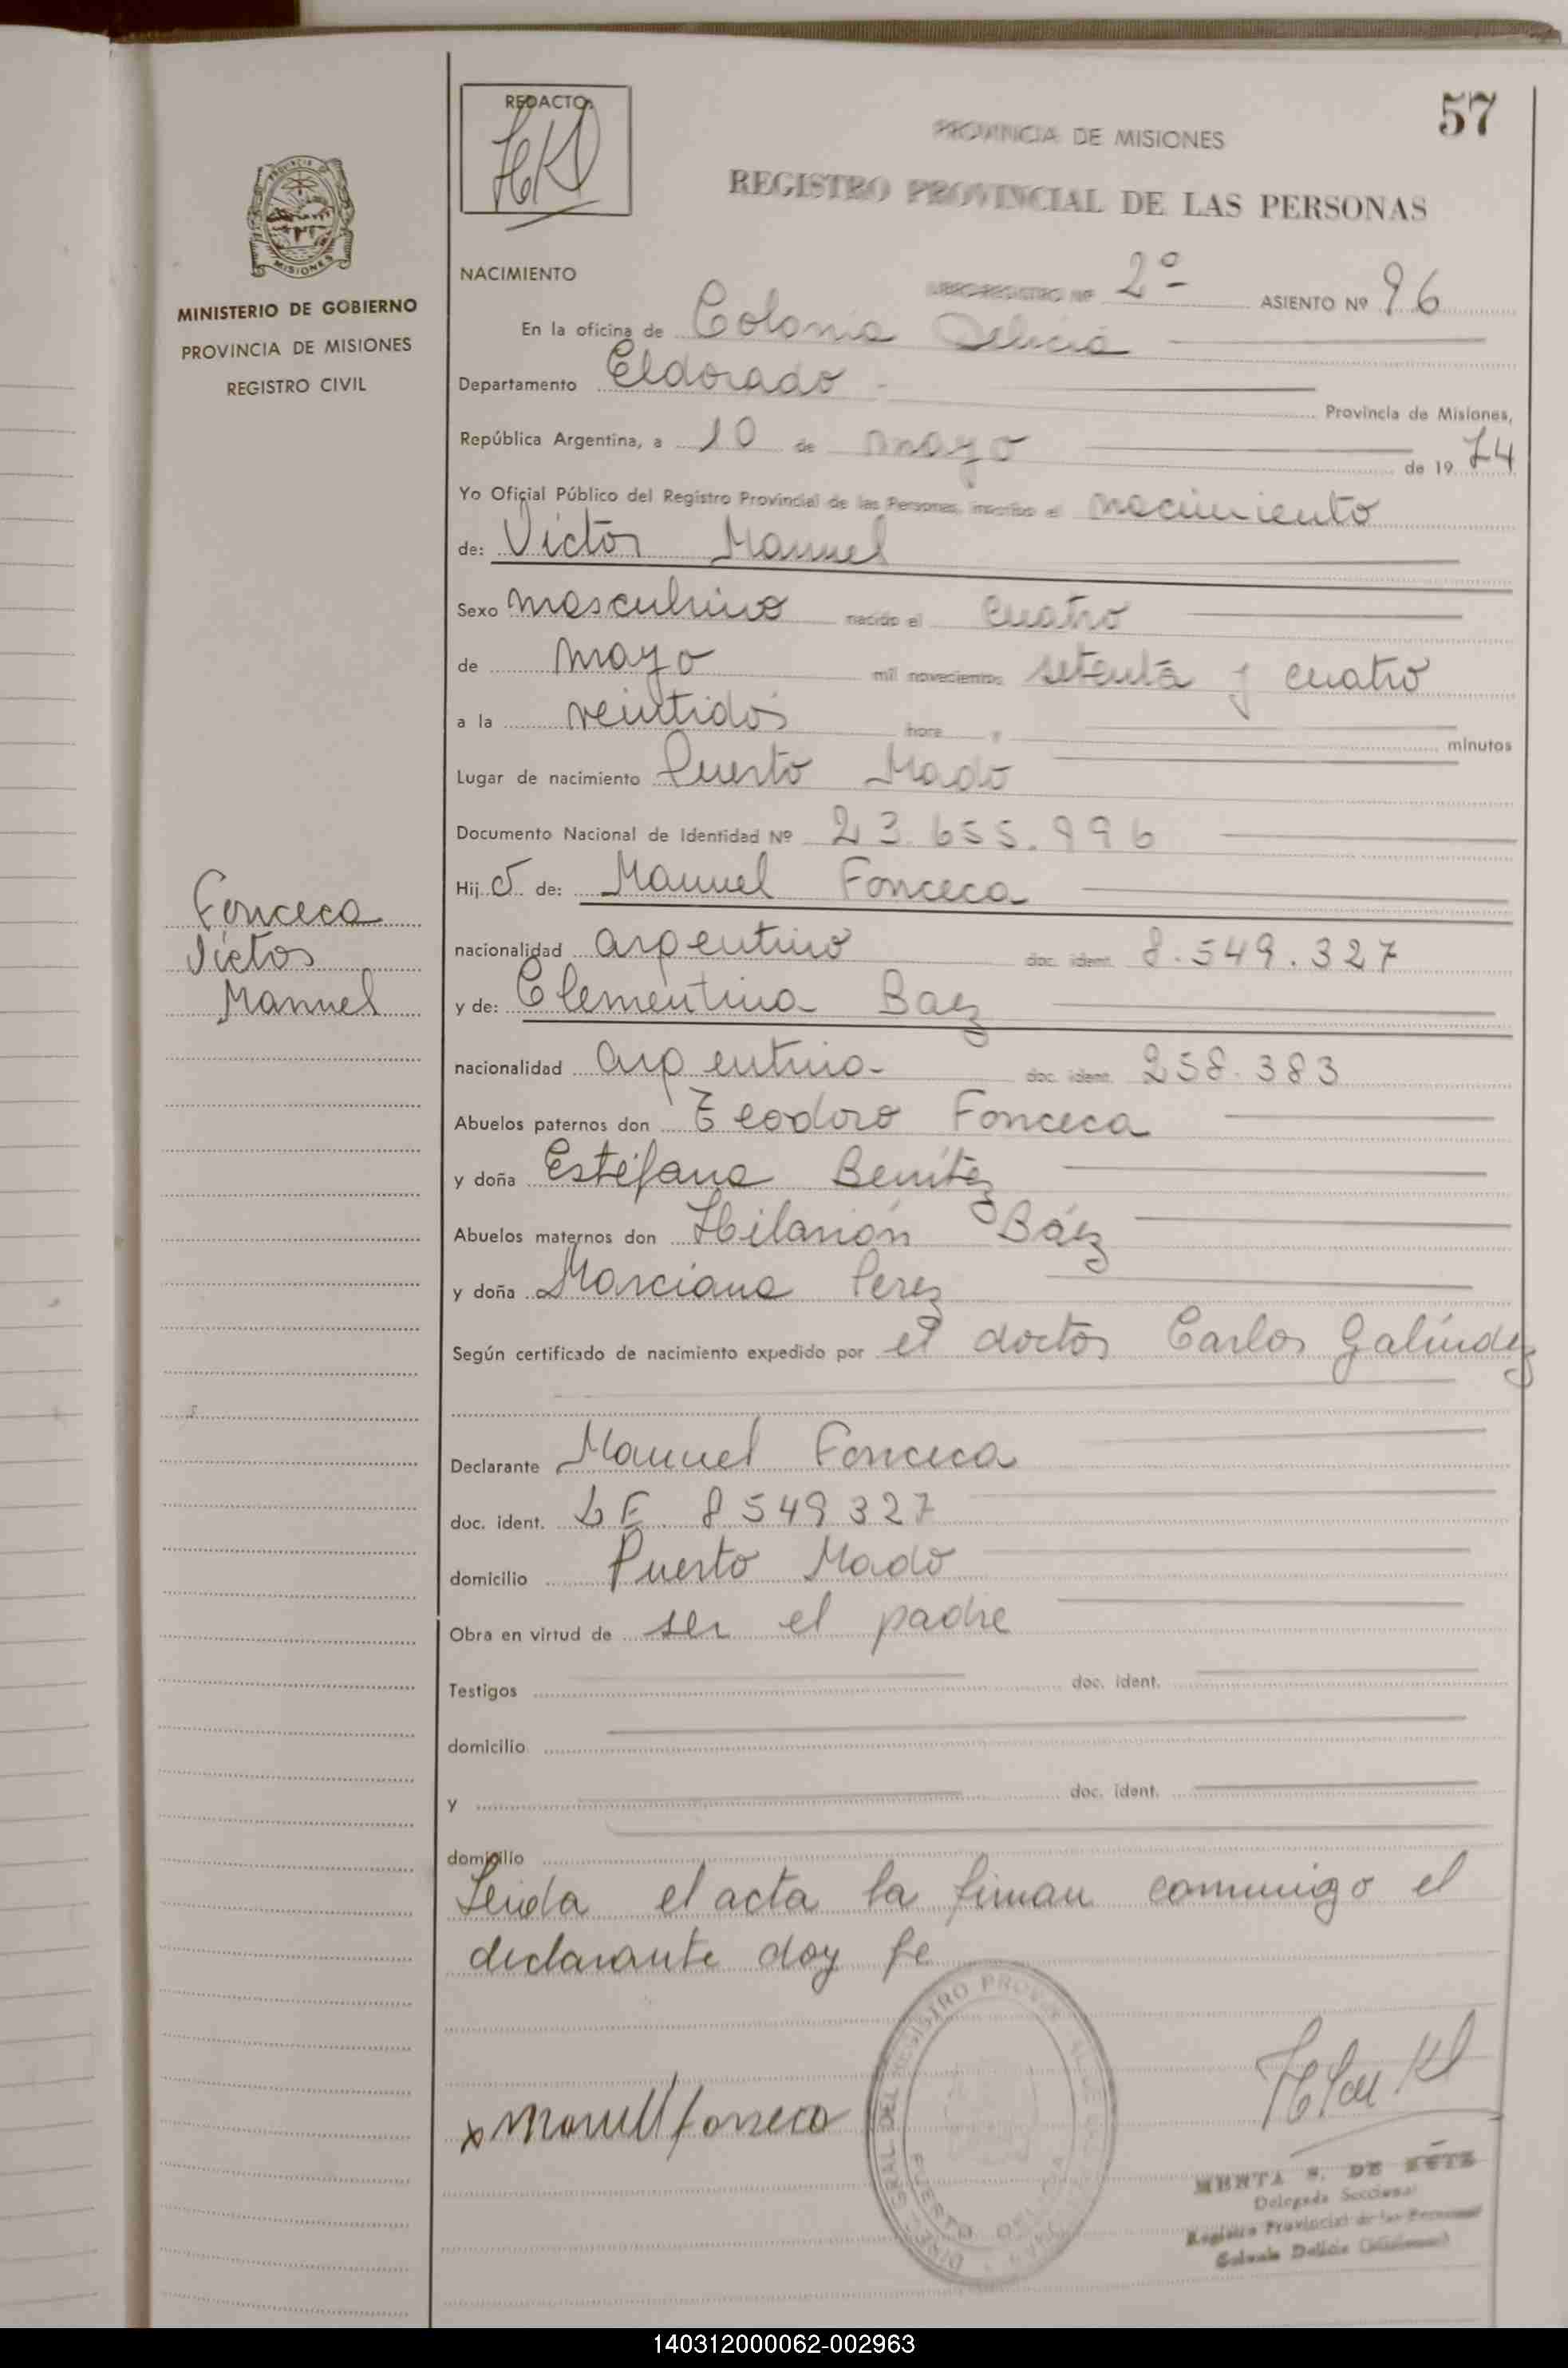 57
REDACTO:
PROVINCIA DE MISIONES
REGISTRO PROVINCIAL DE LAS PERSONAS
MISIONES
MINISTERIO DE GOBIERNO
PROVINCIA DE MISIONES
REGISTRO CIVIL
NACIMIENTO
LIBRO REGISTRO Nº 2º ASIENTO Nº 96
En la oficina de Colonia Delicia
Departamento Eldorado - Provincia de Misiones,
República Argentina, a 10 de mayo de 19 74
Yo Oficial Público del Registro Provincial de las Personas, inscribo el nacimiento
de: Victor Manuel
Sexo masculino nacido el cuatro
de mayo mil novecientos setenta y cuatro
a la veintidos hora y minutos
Lugar de nacimiento Puerto Mado
Documento Nacional de Identidad Nº 23.655.996
Hij o de: Manuel Fonceca
nacionalidad argentino doc. ident. 8.549.327
y de: Clementina Baez
nacionalidad argentina- doc. ident. 258.383
Abuelos paternos don Teodoro Fonceca
y doña Estéfana Benítez
Abuelos maternos don Hilarión Báez
y doña Marciana Perez
Según certificado de nacimiento expedido por el doctor Carlos Galíndez
Declarante Manuel Fonceca
doc. ident. LE. 8549327
domicilio Puerto Mado
Obra en virtud de ser el padre
Testigos doc. ident.
domicilio
y doc. ident.
domicilio
Leida el acta la firman conmigo el
declarante doy fe
Fonceca
Victor
Manuel
x Manuel fonseca
GRAL DEL REGISTRO
PUERTO DELICIA
S. DE
Delegada Seccional
Registro Provincial de las Personas
Colonia Delicia (Misiones)
140312000062-002963